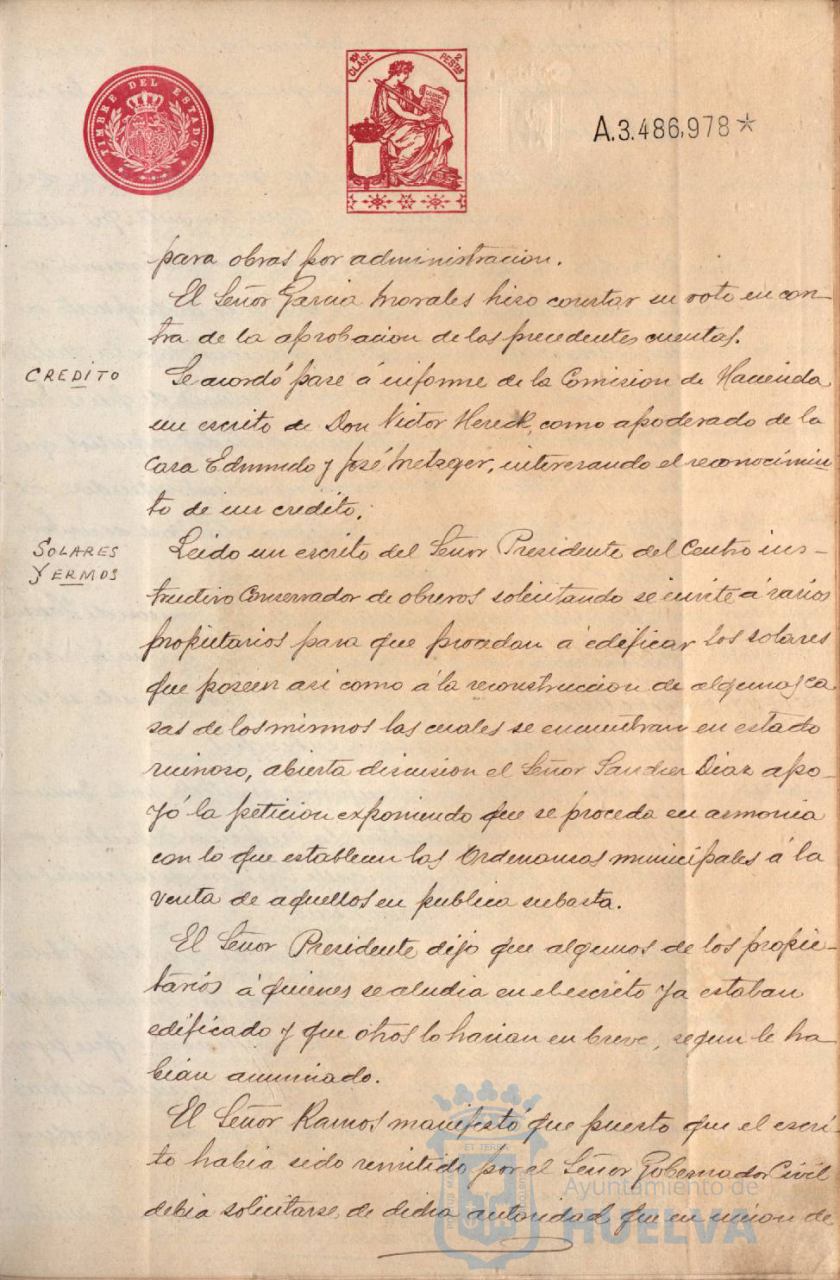 TIMBRE DEL ESTADO
10ª CLASE
2 PESETAS
A.3.486,978*
para obras por administracion.
El Señor Garcia Morales hizo constar su voto en con-
tra de la aprobacion de las precedentes cuentas.
CREDITO
Se acordó pase á informe de la Comision de Hacienda
un escrito de Don Victor Hereck, como apoderado de la
Casa Edmundo y José Metzger, interesando el reconocimin
to de un credito.
SOLARES
YERMOS
Leido un escrito del Señor Presidente del Centro ins-
tructivo Conservador de obreros solicitando se invite á varios
propietarios para que procedan á edificar los solares
que poseen asi como á la reconstruccion de algunas ca
sas de los mismos las cuales se encuentran en estado
ruinoso, abierta discusion el Señor Sanchez Diaz apo-
yó la peticion exponiendo que se proceda en armonia
con lo que establecen las Ordenansas municipales á la
venta de aquellos en publica subasta.
El Señor Presidente dijo que algunos de los propie-
tarios á quienes se aludia en el escrito ya estaban
edificado y que otros lo harian en breve, segun le ha
bian anunciado.
El Señor Ramos manifestó que puesto que el escri-
to habia sido remitido por el Señor Gobernador Civil
debia solicitarse de dicha autoridad que en union de
Ayuntamiento de
HUELVA